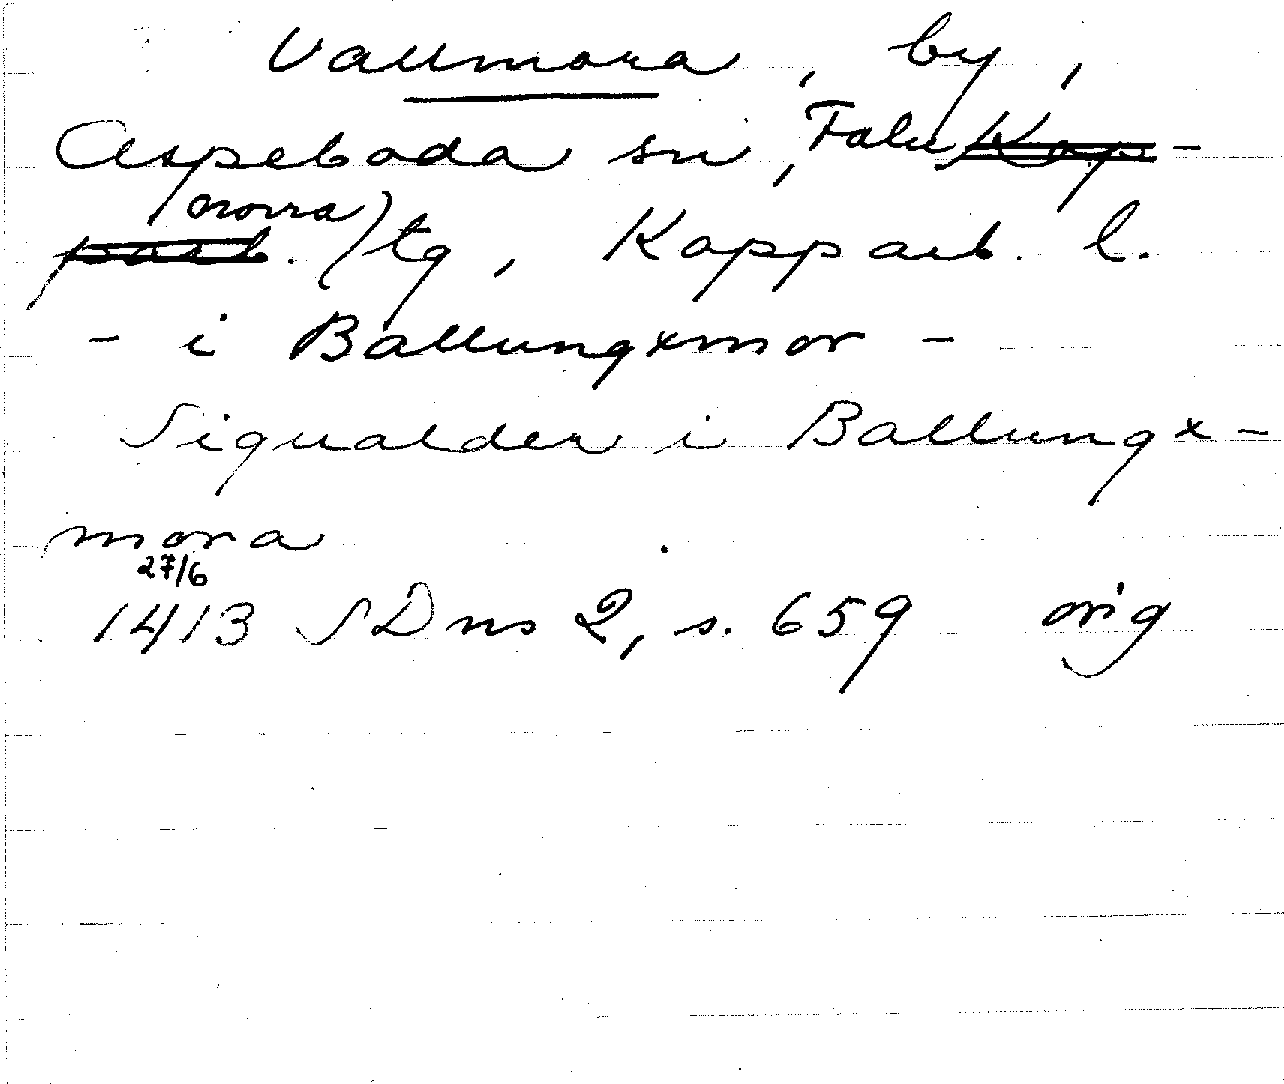 Vallmora, by,
Aspeboda sn, Falu Kop-
parb. norra tg, Kopparb. l.
- i Ballungxmor -
Sigualder i Ballungx-
mora
27/6
1413 SDns 2, s. 659 orig